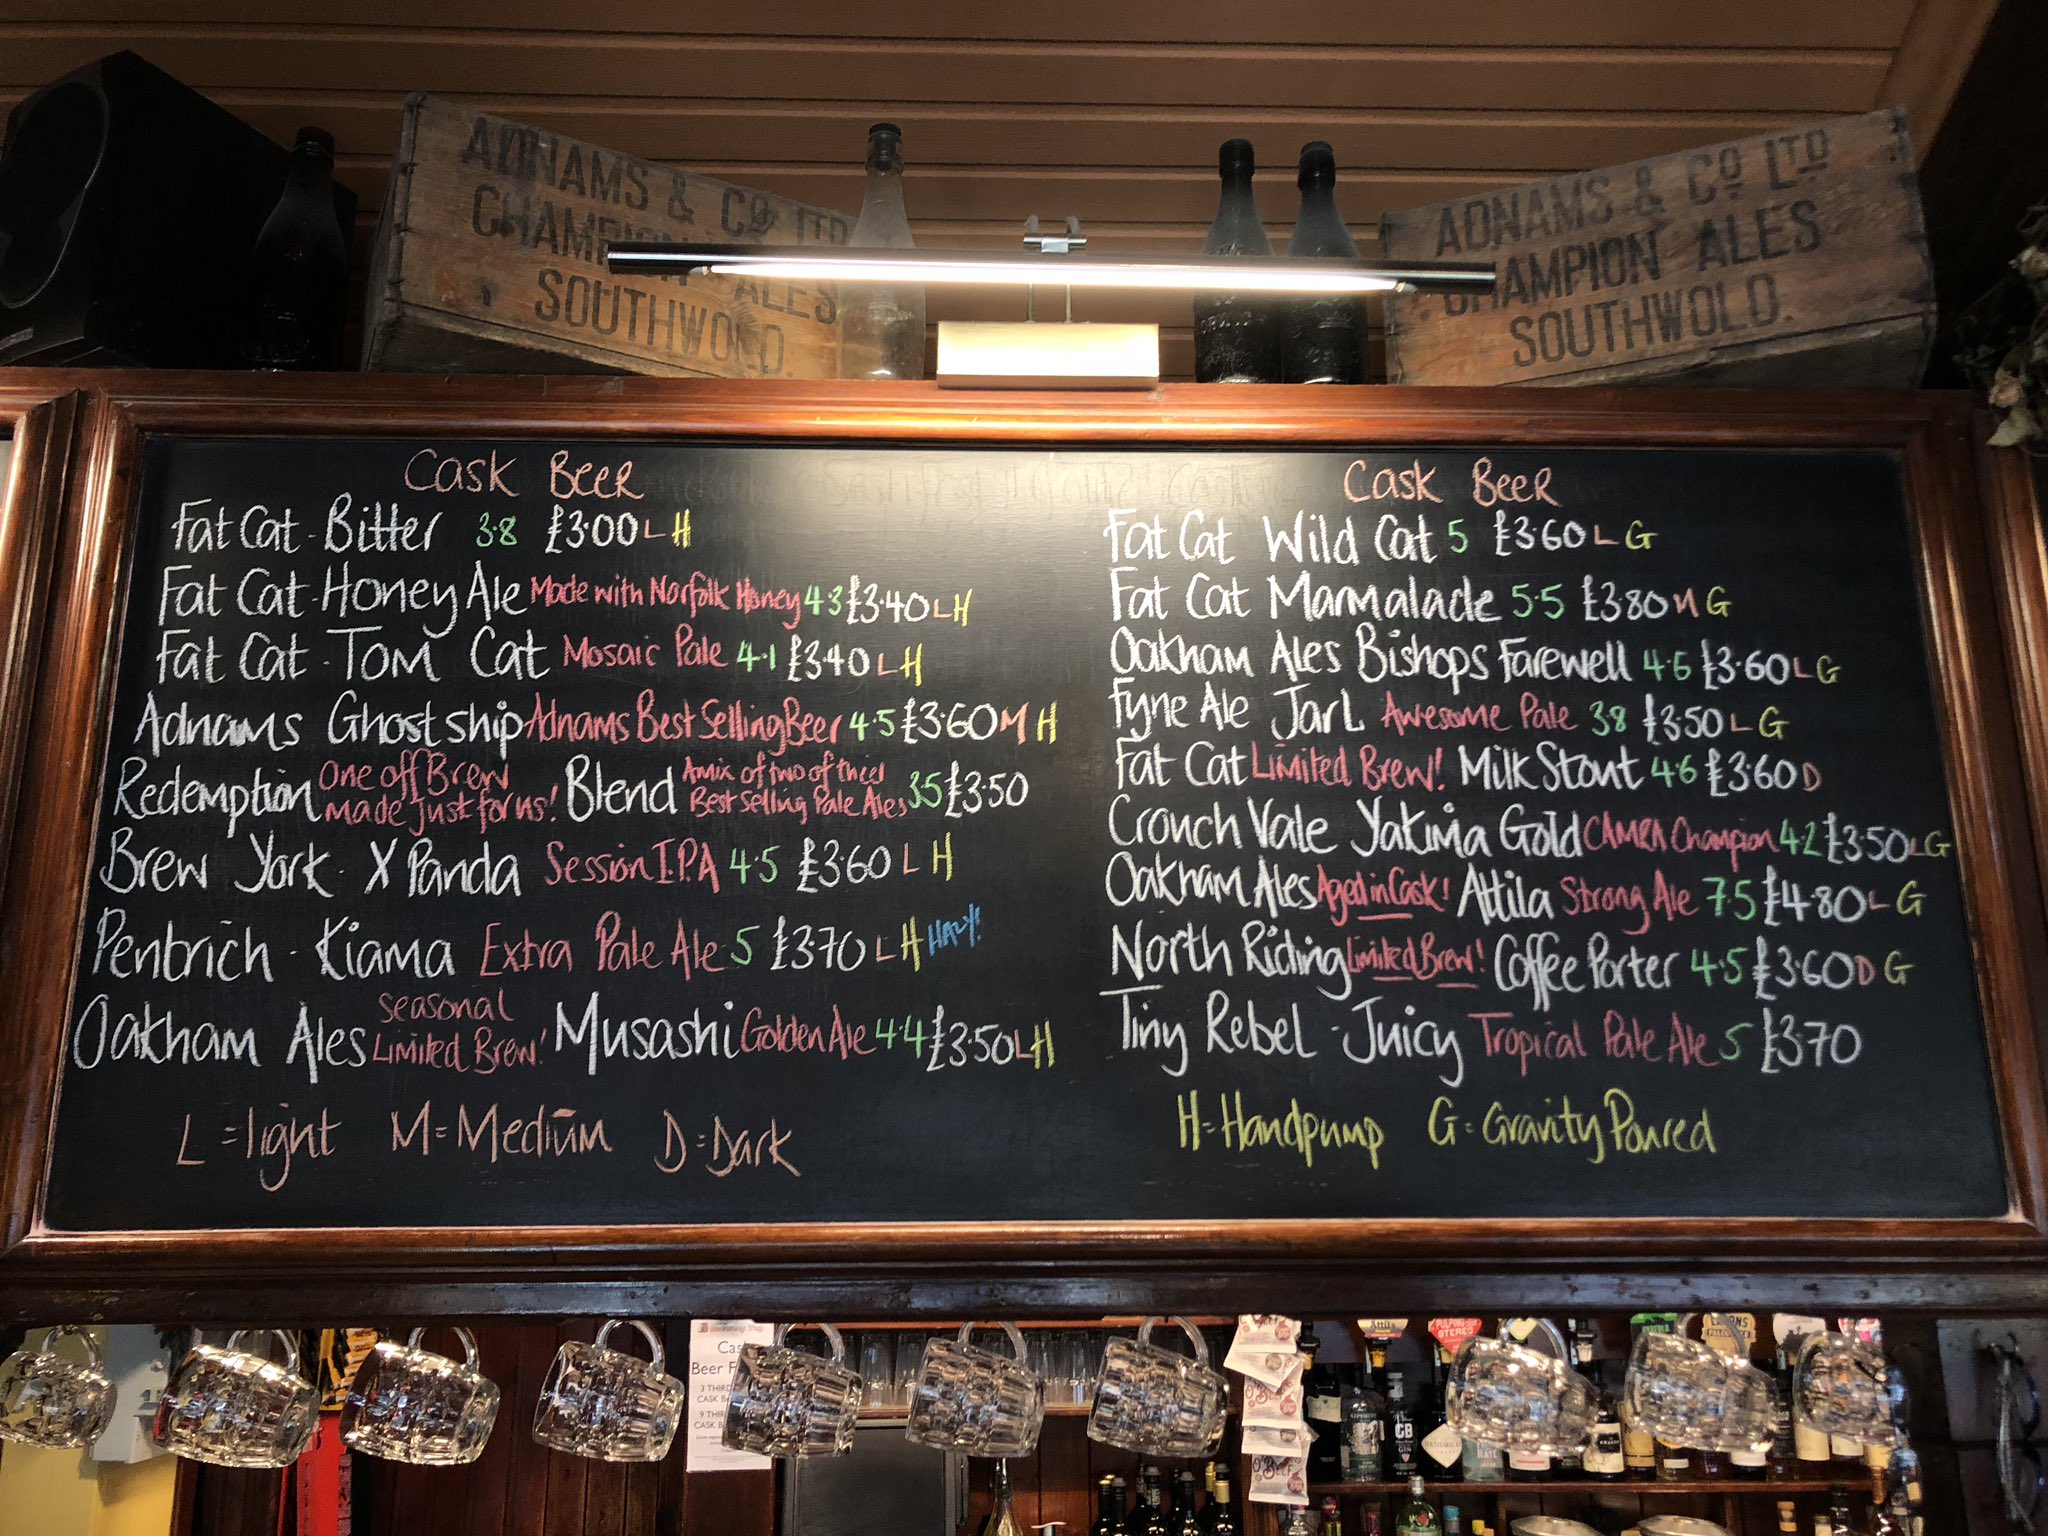 ADNAMS & CO LTD
CHAMPION ALES
SOUTHWOLD.
ADNAMS & CO LTD
CHAMPION ALES
SOUTHWOLD.
Cask Beer
Fat Cat - Bitter 3.8 £3.00 L H
Fat Cat - Honey Ale Made with Norfolk Honey 4.3 £3.40 L H
Fat Cat - Tom Cat Mosaic Pale 4.1 £3.40 L H
Adnams Ghostship Adnams Best Selling Beer 4.5 £3.60 M H
Redemption One off Brew made just for us! Blend A mix of two of thier Best Selling Pale Ales 3.5 £3.50
Brew York - X Panda Session I.P.A 4.5 £3.60 L H
Pentrich - Kiama Extra Pale Ale 5 £3.70 L H HAZY!
Oakham Ales Seasonal Limited Brew! Musashi Golden Ale 4.4 £3.50 L H
L = light M = Medium D = Dark
Cask Beer
Fat Cat Wild Cat 5 £3.60 L G
Fat Cat Marmalade 5.5 £3.80 M G
Oakham Ales Bishops Farewell 4.6 £3.60 L G
Fyne Ale Jarl Awesome Pale 3.8 £3.50 L G
Fat Cat Limited Brew! Milk Stout 4.6 £3.60 D
Crouch Vale Yakima Gold CAMRA Champion 4.2 £3.50 L G
Oakham Ales Aged in Cask! Attila Strong Ale 7.5 £4.80 L G
North Riding Limited Brew! Coffee Porter 4.5 £3.60 D G
Tiny Rebel - Juicy Tropical Pale Ale 5 £3.70
H = Handpump G = Gravity Poured
Beer
3 THIRD
CASK
CASK
Attila
STEREO